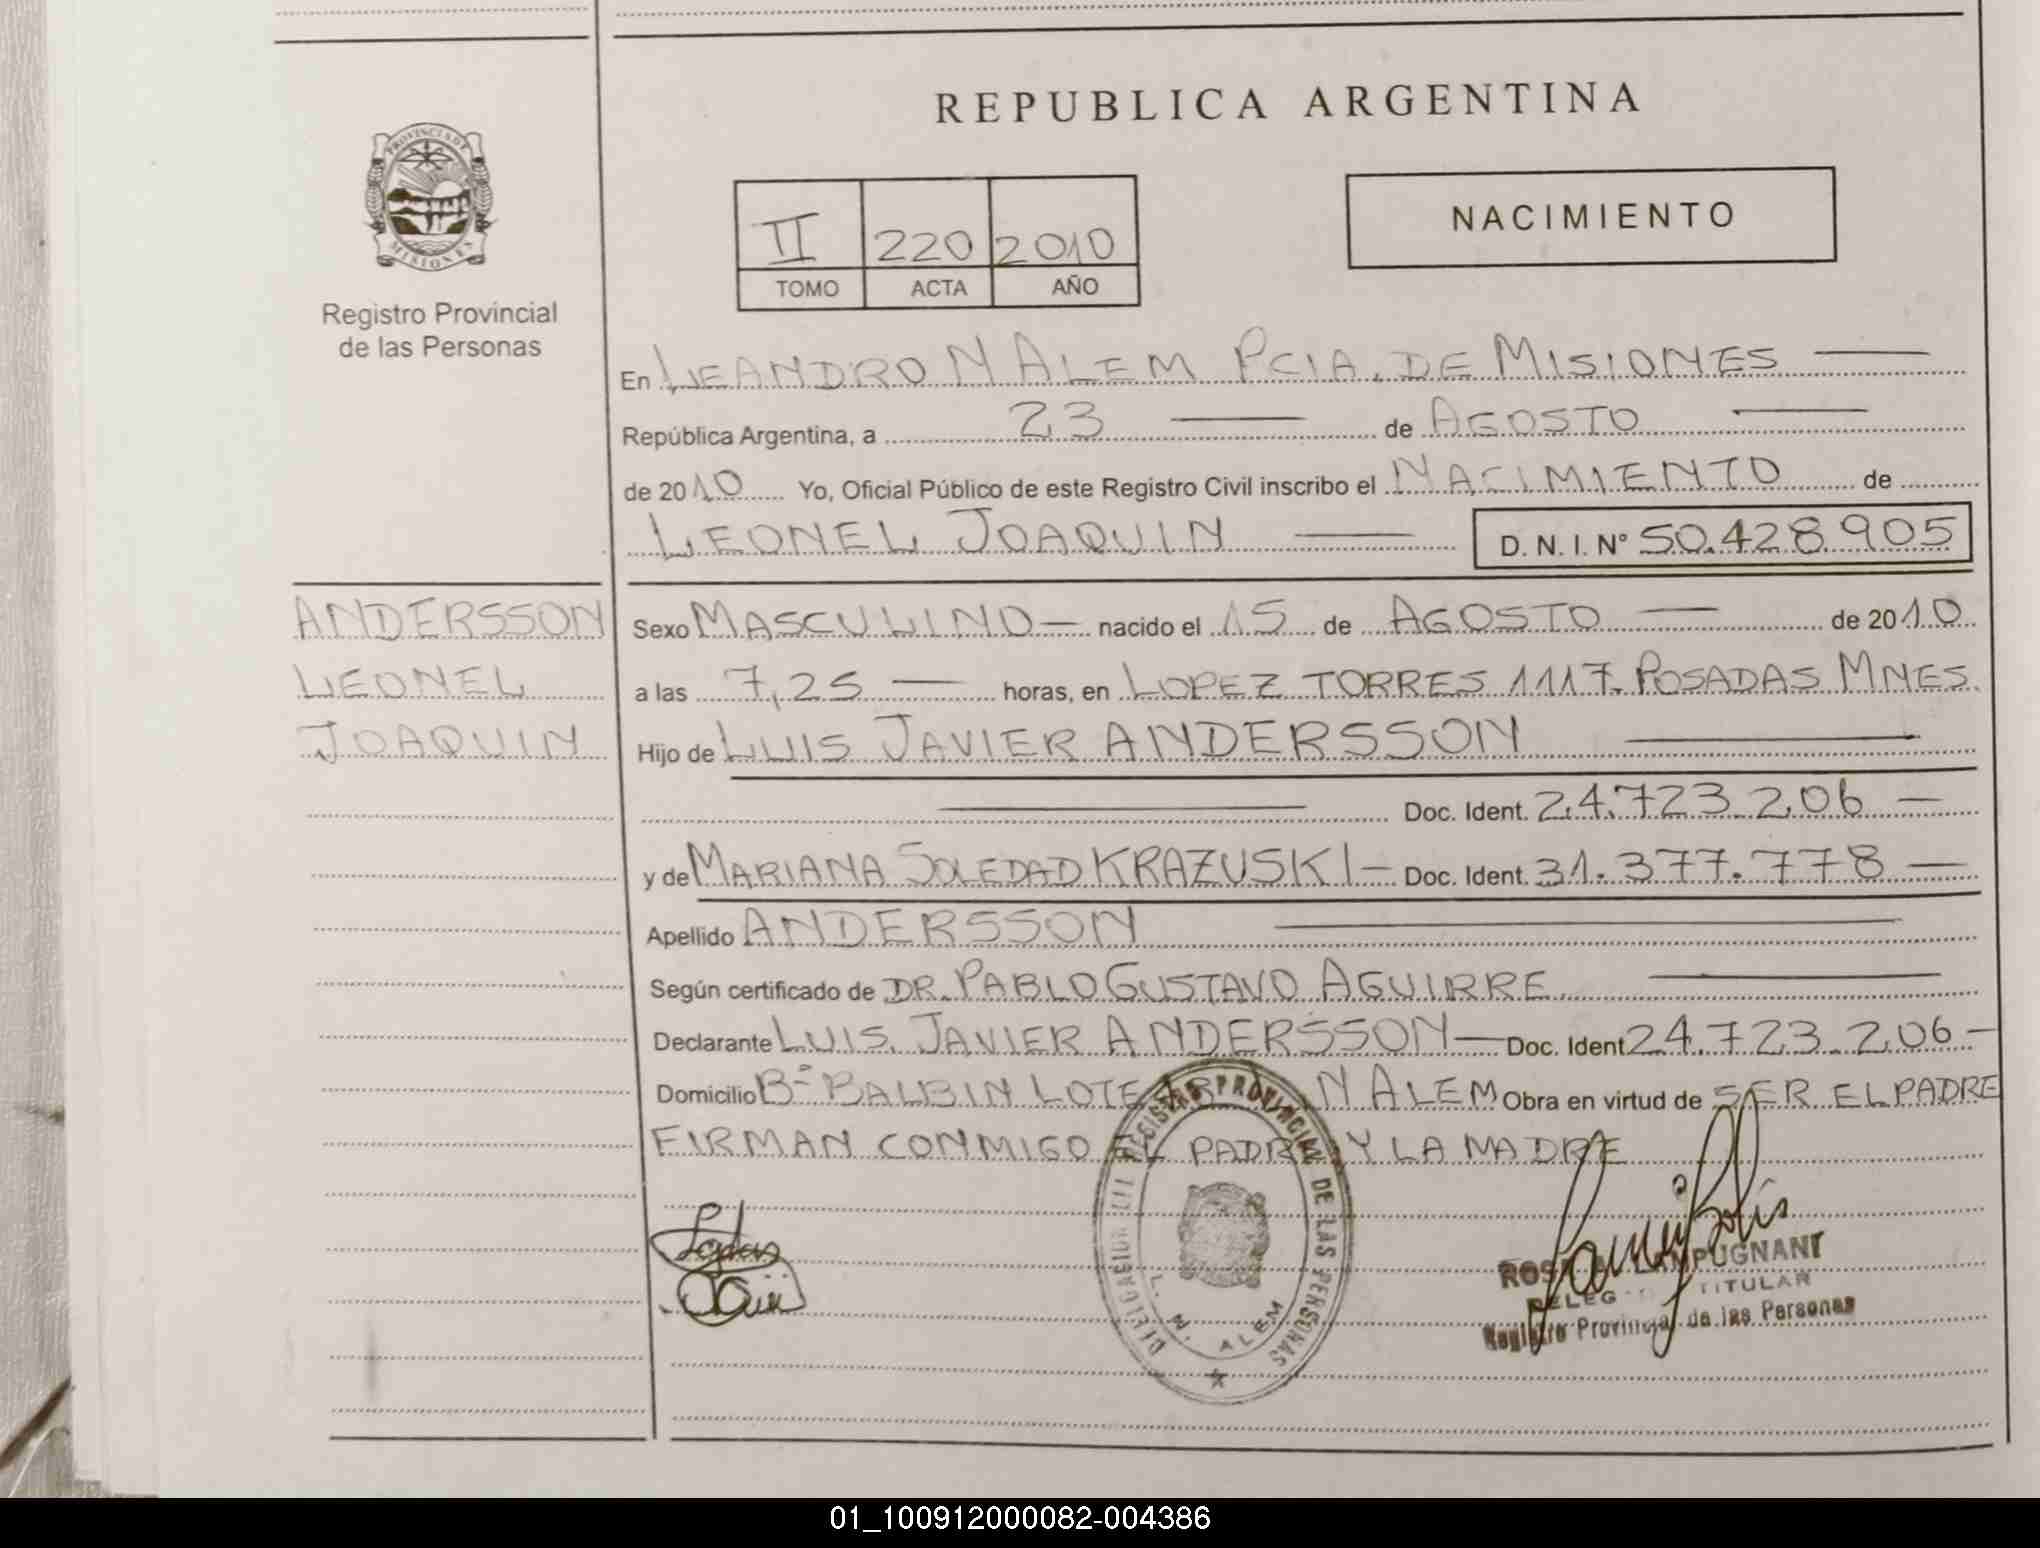 REPUBLICA ARGENTINA
PROVINCIA DE
MISIONES
Registro Provincial
de las Personas
II 220 2010
TOMO ACTA AÑO
NACIMIENTO
En LEANDRO N ALEM PCIA. DE MISIONES
República Argentina, a 23 de AGOSTO
de 2010 Yo, Oficial Público de este Registro Civil inscribo el NACIMIENTO de
LEONEL JOAQUIN D. N. I. N° 50.428.905
ANDERSSON
LEONEL
JOAQUIN
Sexo MASCULINO nacido el 15 de AGOSTO de 2010
a las 7,25 horas, en LOPEZ TORRES 1117. POSADAS MNES.
Hijo de LUIS JAVIER ANDERSSON
Doc. Ident. 24.723.206
y de MARIANA SOLEDAD KRAZUSKI Doc. Ident. 31.377.778
Apellido ANDERSSON
Según certificado de DR. PABLO GUSTAVO AGUIRRE
Declarante LUIS JAVIER ANDERSSON Doc. Ident 24.723.206
Domicilio B° BALBIN LOTE N ALEM Obra en virtud de SER EL PADRE
FIRMAN CONMIGO EL PADRE Y LA MADRE
REGISTRO PROVINCIAL DE LAS PERSONAS
L. N. ALEM
TITULAR
Registro Provincial de las Personas
01_100912000082-004386